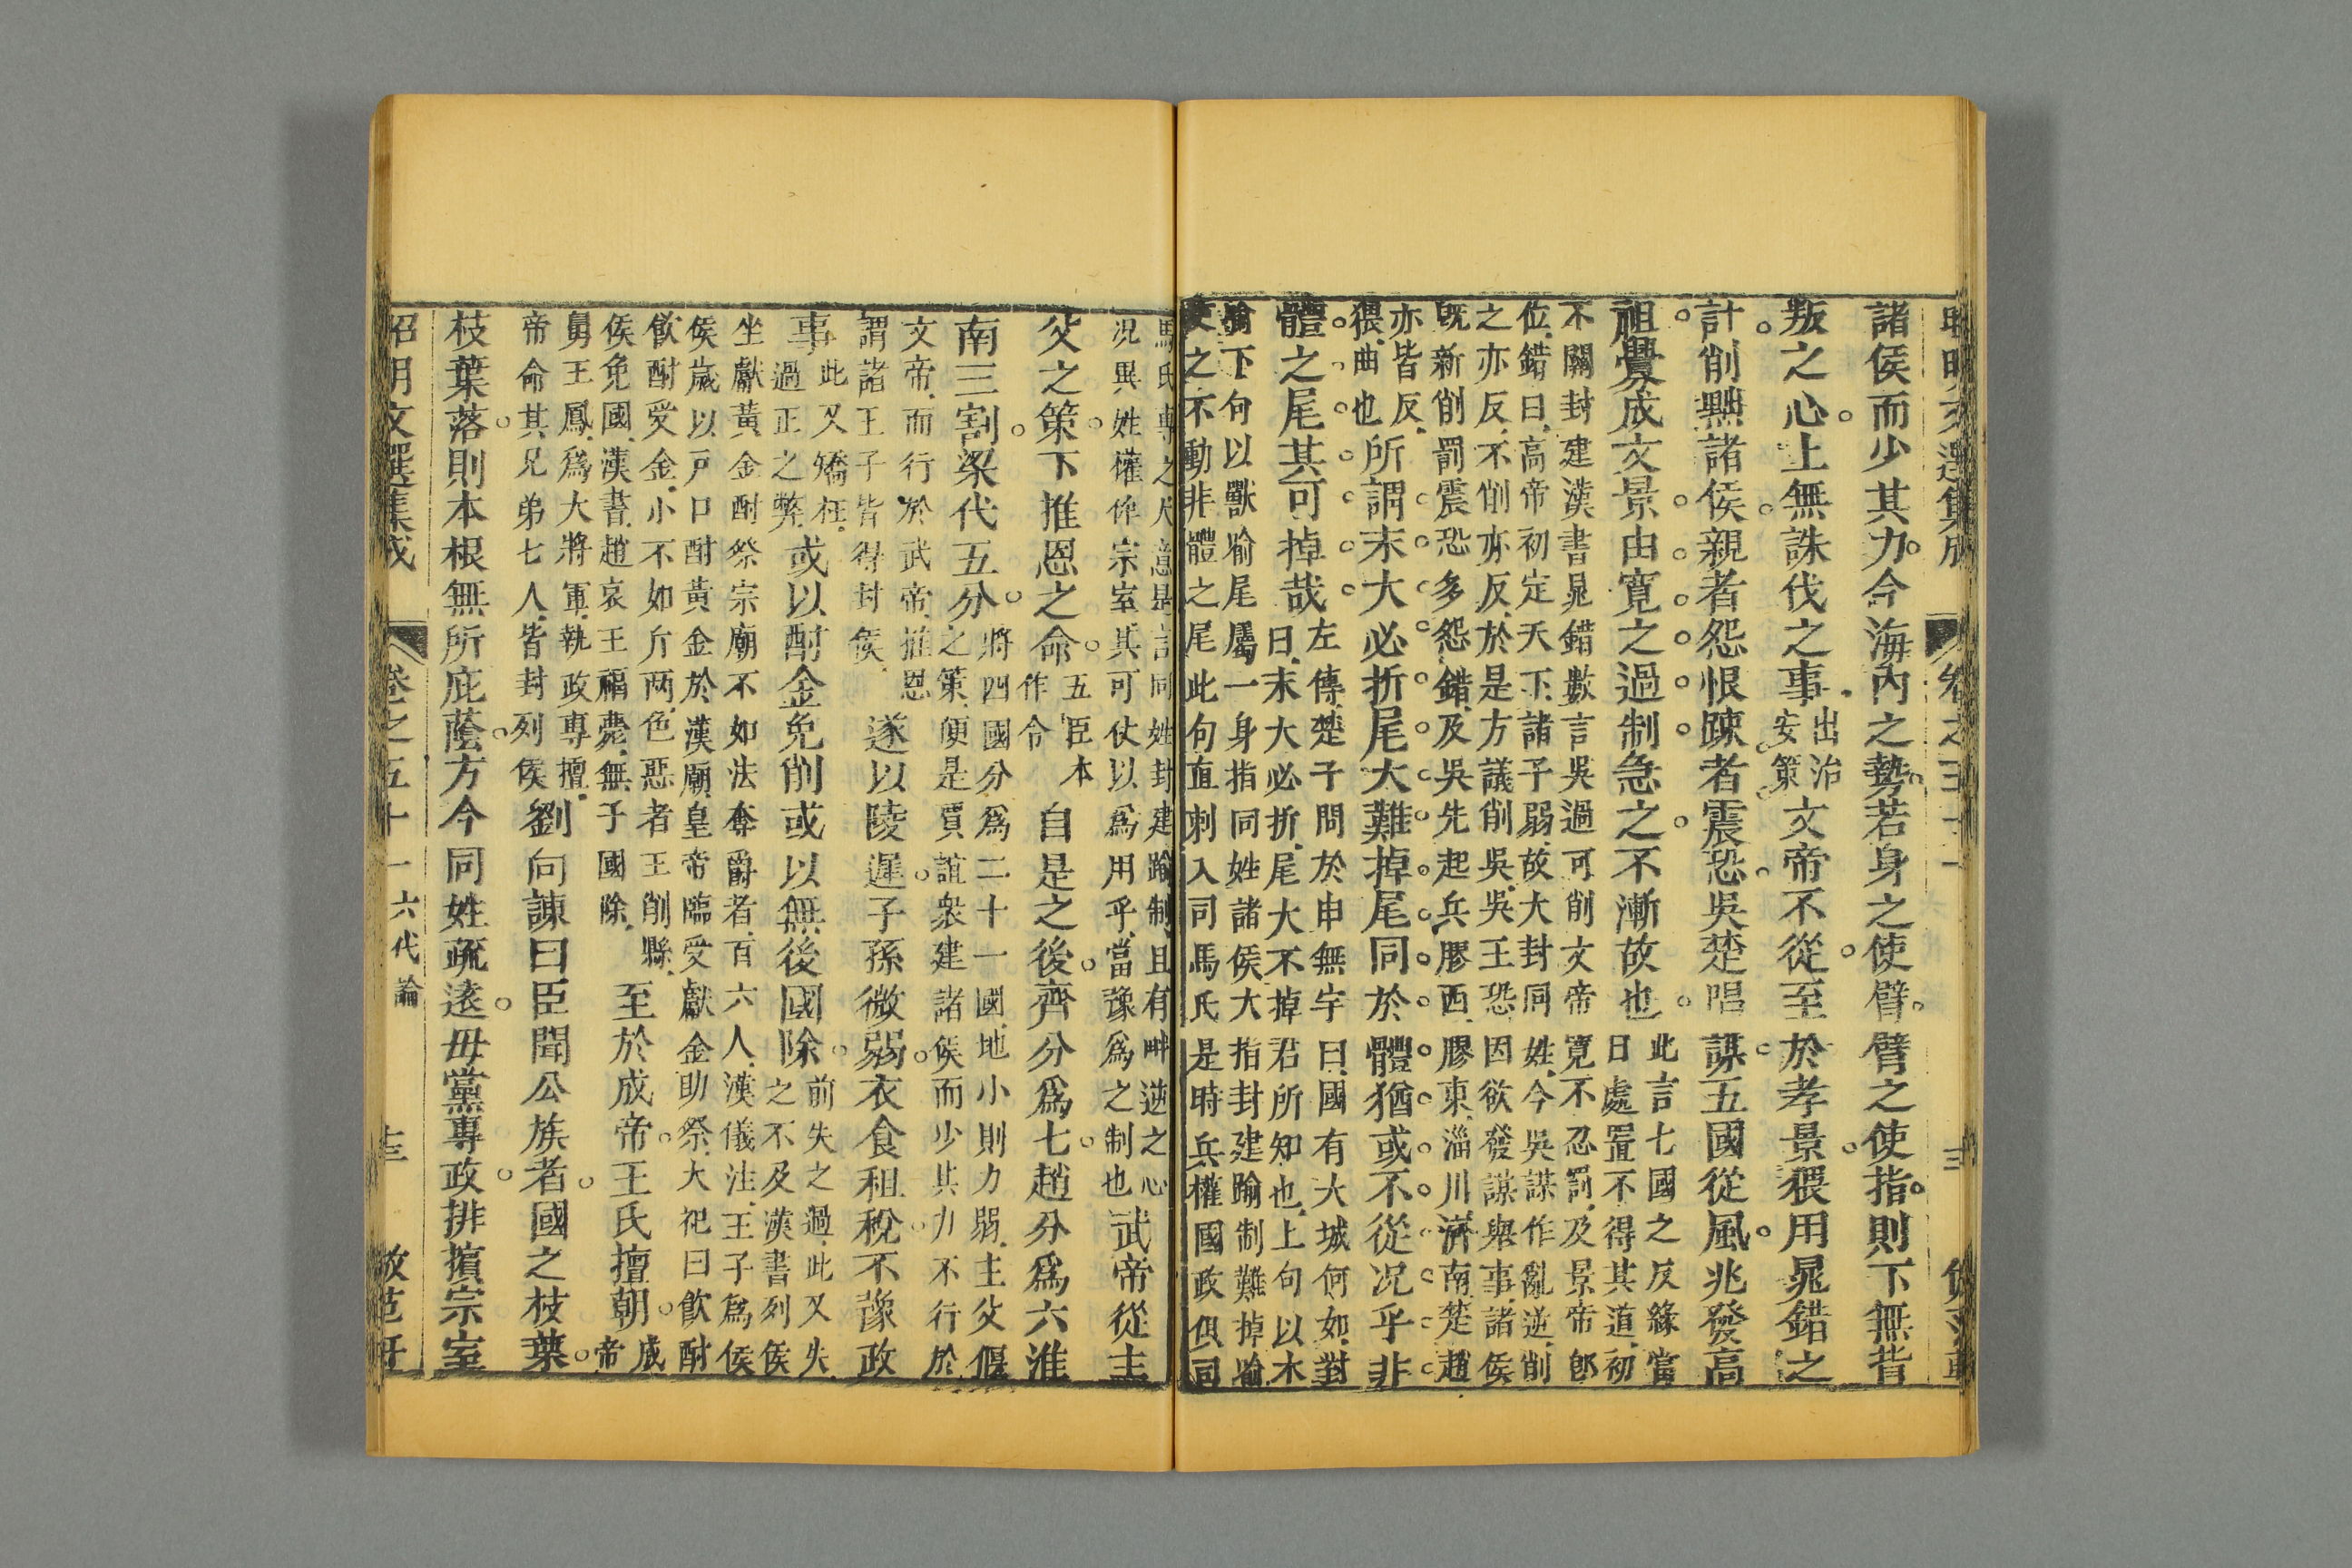 諸侯而少其力今海內之勢若身之使臂臂之使指則下無背
叛之心上無誅伐之事出治安策文帝不從至於孝景猥用晁錯之
計削黜諸侯親者怨恨疎者震恐吳楚唱謀五國從風兆發高
祖釁成文景由寛之過制急之不漸故也此言七國之反緣當日處置不得其道初
不關封建漢書晁錯數言吳過可削文帝寛不忍罰及景帝卽
位錯曰高帝初定天下諸子弱故大封同姓今吳謀作亂逆削
之亦反不削亦反於是方議削吳吳王恐因欲發謀舉事諸侯
既新削罰震恐多怨錯及吳先起兵膠西膠東淄川濟南楚趙
亦皆反猥曲也所謂末大必折尾大難掉尾同於體猶或不從况乎非
體之尾其可掉哉左傳楚子問於申無宇曰國有大城何如對曰末大必折尾大不掉君所知也上句以木
喻下句以獸喻尾屬一身指同姓諸侯大指封建踰制難掉喻
使之不動非體之尾此句直刺入司馬氏是時兵權國政俱司
馬氏專之意是言同姓封建踰制且有畔逆之心
况異姓權侔宗室其可仗以爲用乎當豫爲之制也武帝從主
父之策下推恩之命五臣本作令自是之後齊分爲七趙分爲六淮
南三割梁代五分將四國分爲二十一國地小則力弱主父偃之策便是賈誼衆建諸侯而少其力不行於
文帝而行於武帝推恩謂諸王子皆得封侯遂以陵遲子孫微弱衣食租稅不豫政
事此又矯枉過正之弊或以酎金免削或以無後國除前失之過此又失之不及漢書列侯
坐獻黃金酎祭宗廟不如法奪爵者百六人漢儀注王子爲侯
侯歲以戸口酎黃金於漢廟皇帝臨受獻金助祭大祀曰飮酎
飮酎受金小不如斤两色惡者王削縣
侯免國漢書趙哀王福薨無子國除至於成帝王氏擅朝成帝
舅王鳳爲大將軍執政專擅
帝命其兄弟七人皆封列侯劉向諫曰臣聞公族者國之枝葉
枝葉落則本根無所庇蔭方今同姓疏遠毋黨專政排擯宗室
昭明文選集成 卷之五十一 六代論 十三